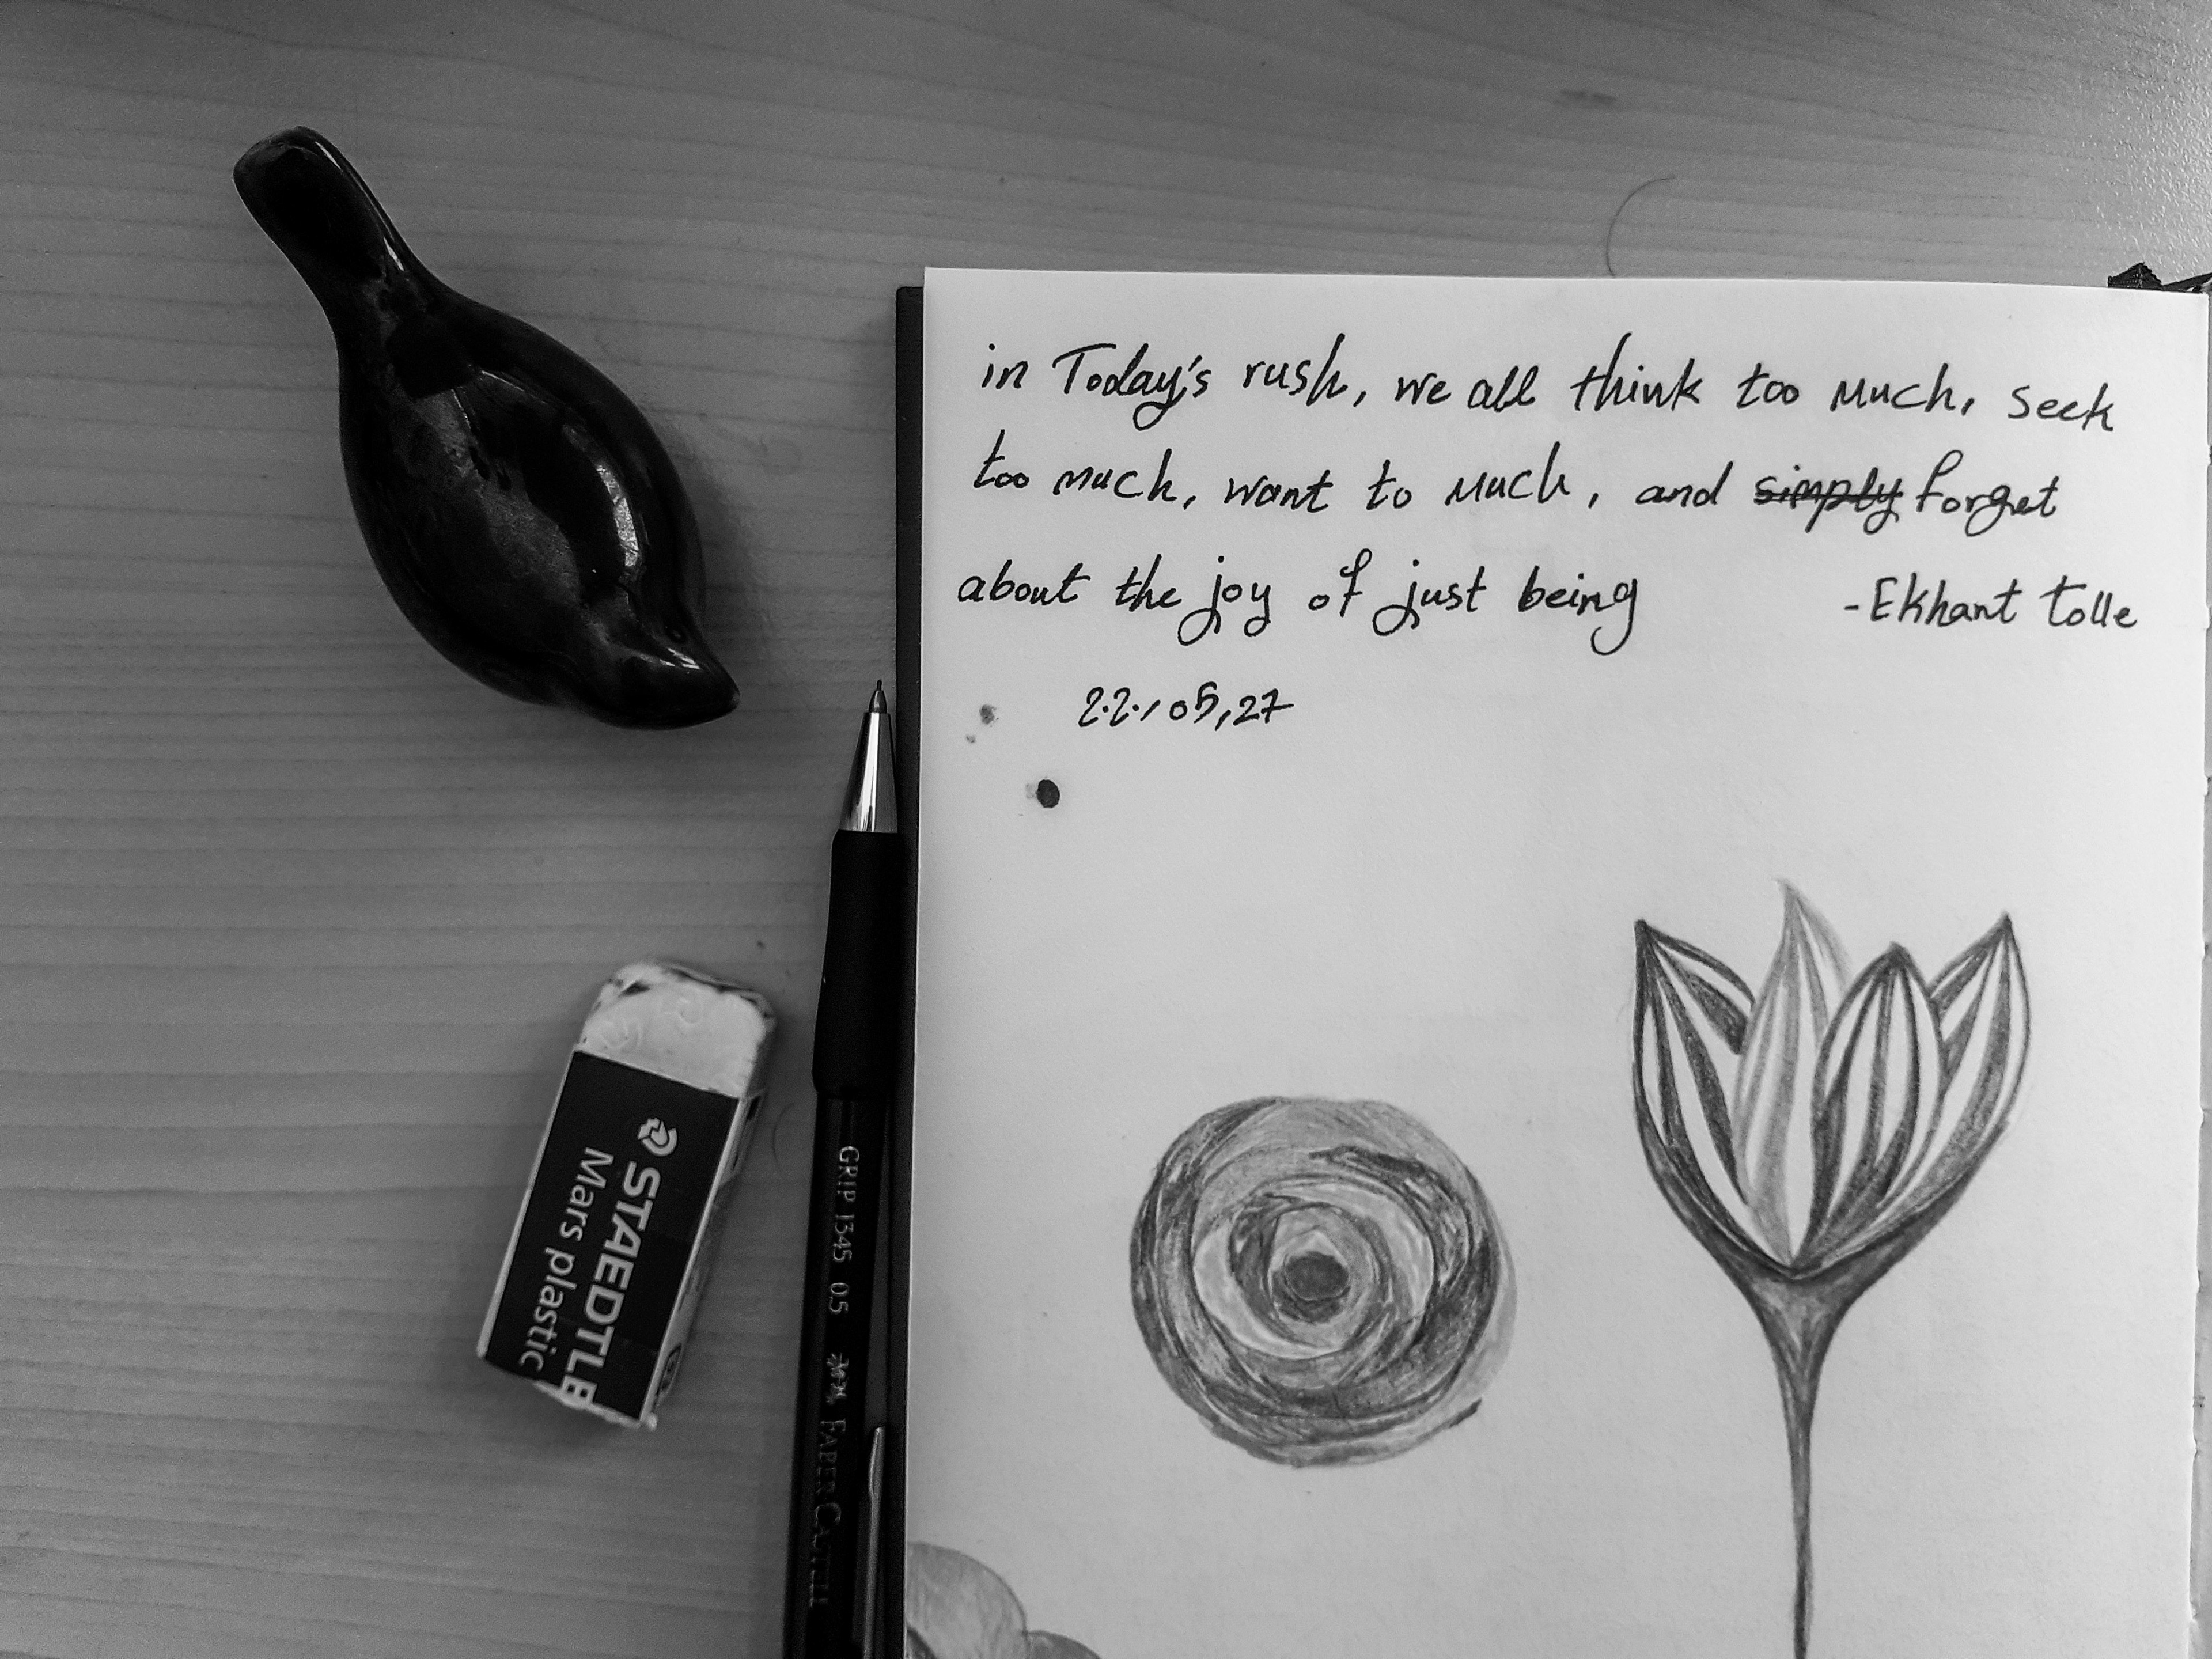 in Today's rush, we all think too much, seek
too much, want to much, and simply forget
about the joy of just being
-Ekhant tolle
22/05,27
STAEDTLE
Mars plastic
GRIP 1345 0.5 FABER CASTELL